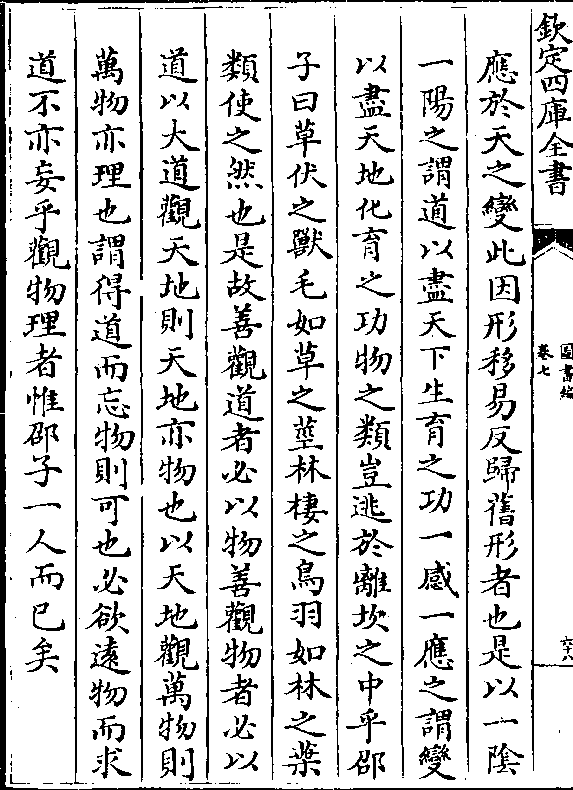 欽定四庫全書
圖書編
卷七
六十八
應於天之變此因形移易反歸舊形者也是以一陰
一陽之謂道以盡天下生育之功一感一應之謂變
以盡天地化育之功物之類豈逃於離坎之中乎邵
子曰草伏之獸毛如草之莖林棲之鳥羽如林之葉
類使之然也是故善觀道者必以物善觀物者必以
道以大道觀天地則天地亦物也以天地觀萬物則
萬物亦理也謂得道而忘物則可也必欲遠物而求
道不亦妄乎觀物理者惟邵子一人而已矣